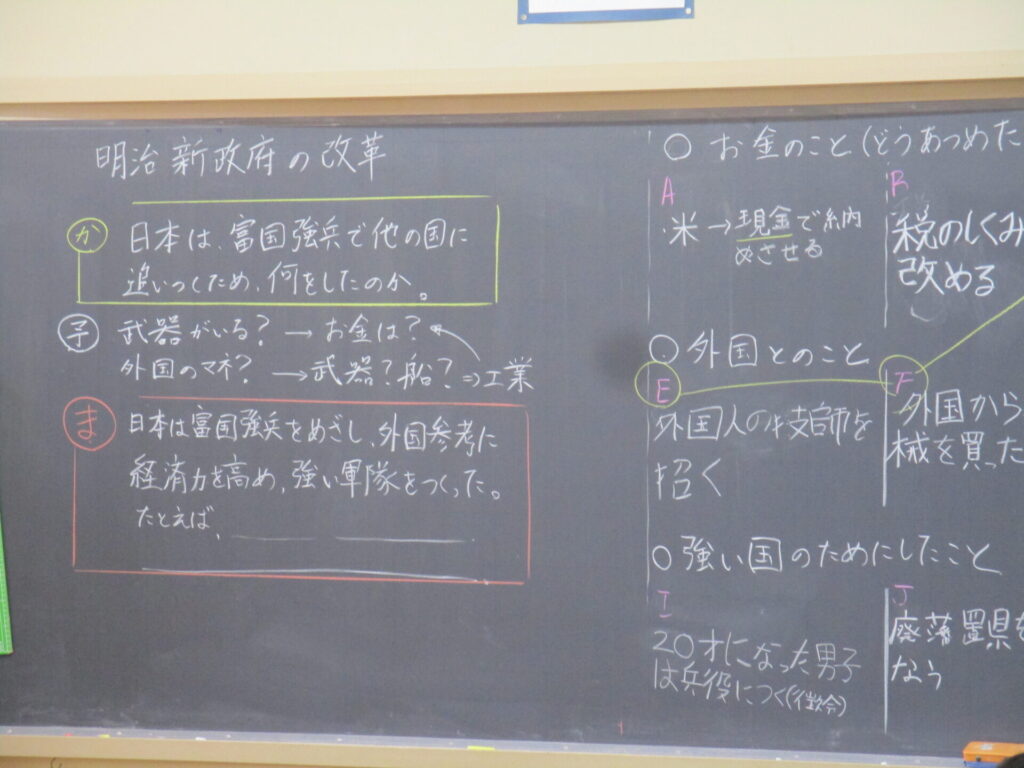 明治新政府の改革
か 日本は、富国強兵で他の国に
追いつくため、何をしたのか。
予 武器がいる？ → お金は？
外国のマネ？ → 武器？船？ ⇒ 工業
ま 日本は富国強兵をめざし、外国参考に
経済力を高め、強い軍隊をつくった。
たとえば、
○ お金のこと(どうあつめた
A
・米→現金で納
めさせる
B
税のしくみ
改める
○ 外国とのこと
E
外国人の技師を
招く
F
外国から
械を買った
○ 強い国のためにしたこと
I
20才になった男子
は兵役につく(徴兵令)
J
廃藩置県を
なう